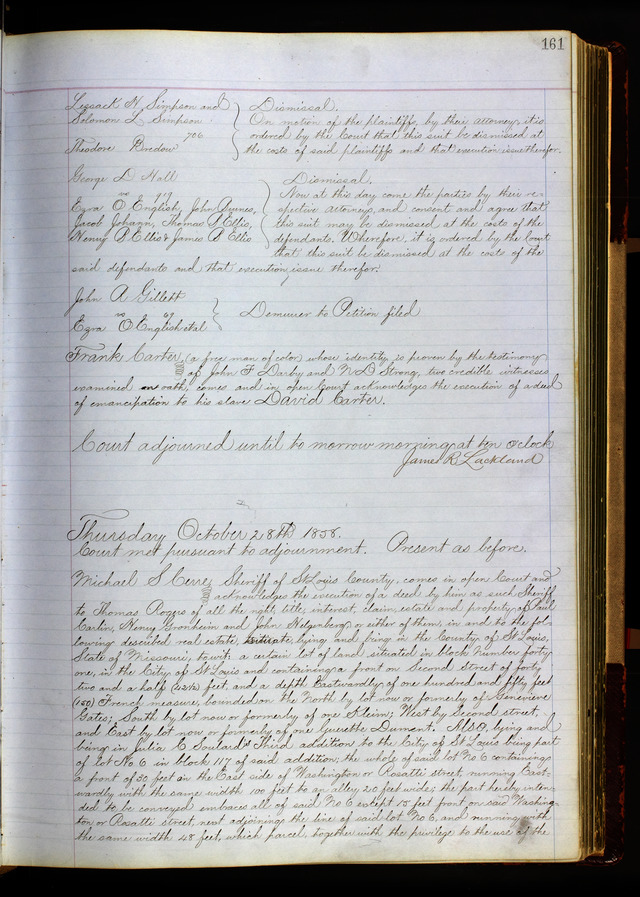 161
Lessack N. Simpson and } Dismissal.
Solomon L Simpson On motion of the plaintiffs by their attorney, it is
706 ordered by the Court that this suit be dismissed at
Theodore Bredow the costs of said plaintiffs and that execution issue therefor.
George D Hall } Dismissal.
vs 719 Now at this day come the parties by their re-
Ezra O English, John spective attorneys, and consent and agree that
Jacob Johann, Thomas A Ellis, this suit may be dismissed at the costs of the
Henry B Ellis & James B Ellis defendants. Wherefore, it is ordered by the Court
that this suit be dismissed at the costs of the
said defendants and that execution issue therefor.
John A Gillett
vs 69 } Demurrer to Petition filed
Ezra O English et al
Frank Carter, (a free man of color) whose identity is proven by the testimony
of John F Darby and N D Strong, two credible witnesses
examined on oath, comes and in open Court acknowledges the execution of a deed
of emancipation to his slave David Carter.
Court adjourned until to morrow morning at ten o'clock
James R Lackland
Thursday October 28th 1858.
Court met pursuant to adjournment. Present as before.
Michael S Cerre, Sheriff of St Louis County, comes in open Court and
acknowledges the execution of a deed by him as such Sheriff
to Thomas Rogers of all the right, title, interest, claim, estate and property of Paul
Carlin, Henry Gronheim and John Helgenberg or either of them, in and to the fol-
lowing described real estate, lying and being in the County of St Louis,
State of Missouri, to wit: a certain lot of land situated in block number forty
one, in the City of St Louis and containing a front on Second Street of forty
two and a half (42½) feet, and a depth Eastwardly of one hundred and fifty feet
(150) French measure, bounded on the North by lot now or formerly of Genevieve
Gates; South by lot now or formerly of one Klein; West by Second street,
and East by lot now or formerly of one Dumont. Also, lying and
being in Julia C Soulard's Third addition to the City of St Louis being part
of lot No 6 in block 117 of said addition, the whole of said lot No 6 containing
a front of 30 feet on the East side of Washington or Rosatti street, running East-
wardly with the same width 100 feet to an alley 20 feet wide; the part hereby inten-
ded to be conveyed embraces all of said No 6 except 15 feet front on said Washing-
ton or Rosatti street, next adjoining the line of said lot No 6, and running with
the same width 48 feet, which parcel, together with the privilege to the use of the